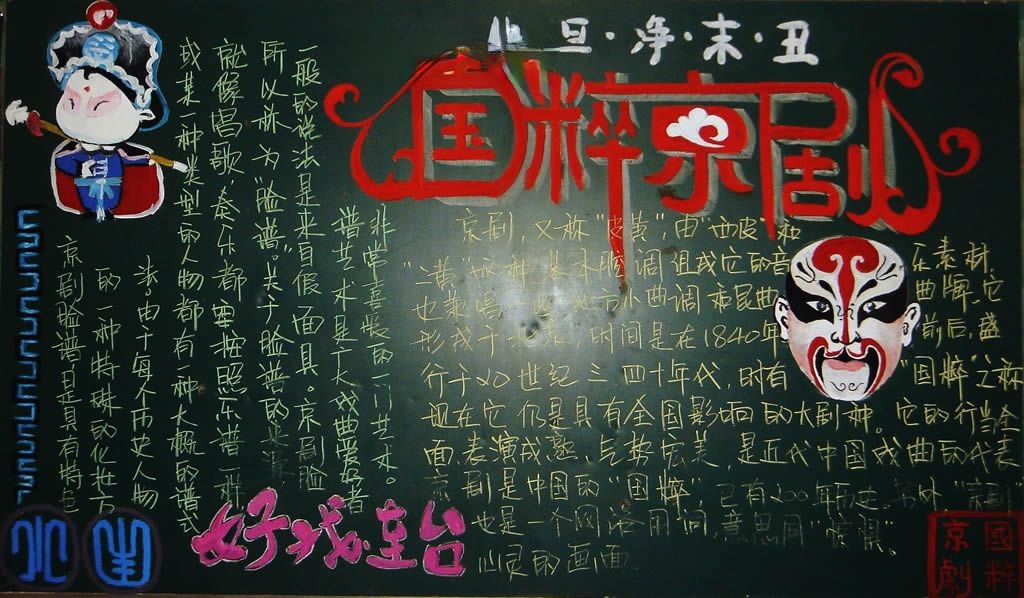 旦·净·末·丑
国粹京剧
京剧脸谱，是具有特色
的一种特殊的化妆方
法。由于每个历史人物
或某一种类型的人物都有一种大概的谱式
就像唱歌、奏乐都要按照乐谱一样
所以称为"脸谱"。关于脸谱的来源
一般的说法是来自假面具。京剧脸
谱艺术是广大戏曲爱好者
非常喜爱的一门艺术。
京剧，又称"皮黄"，由"西皮"和
"二黄"两种基本腔调组成它的音乐素材，
也兼唱一些地方小曲调和昆曲曲牌。它
形成于北京，时间是在1840年前后，盛
行于20世纪三、四十年代，时有"国粹"之称
现在它仍是具有全国影响的大剧种。它的行当全
面、表演成熟、气势宏美，是近代中国戏曲的代表
京剧是中国的"国粹"，已有200年历史。另外"京剧"
也是一个网络用词，意思同"惊惧"。
心灵的画面
好戏连台
國粹
京劇